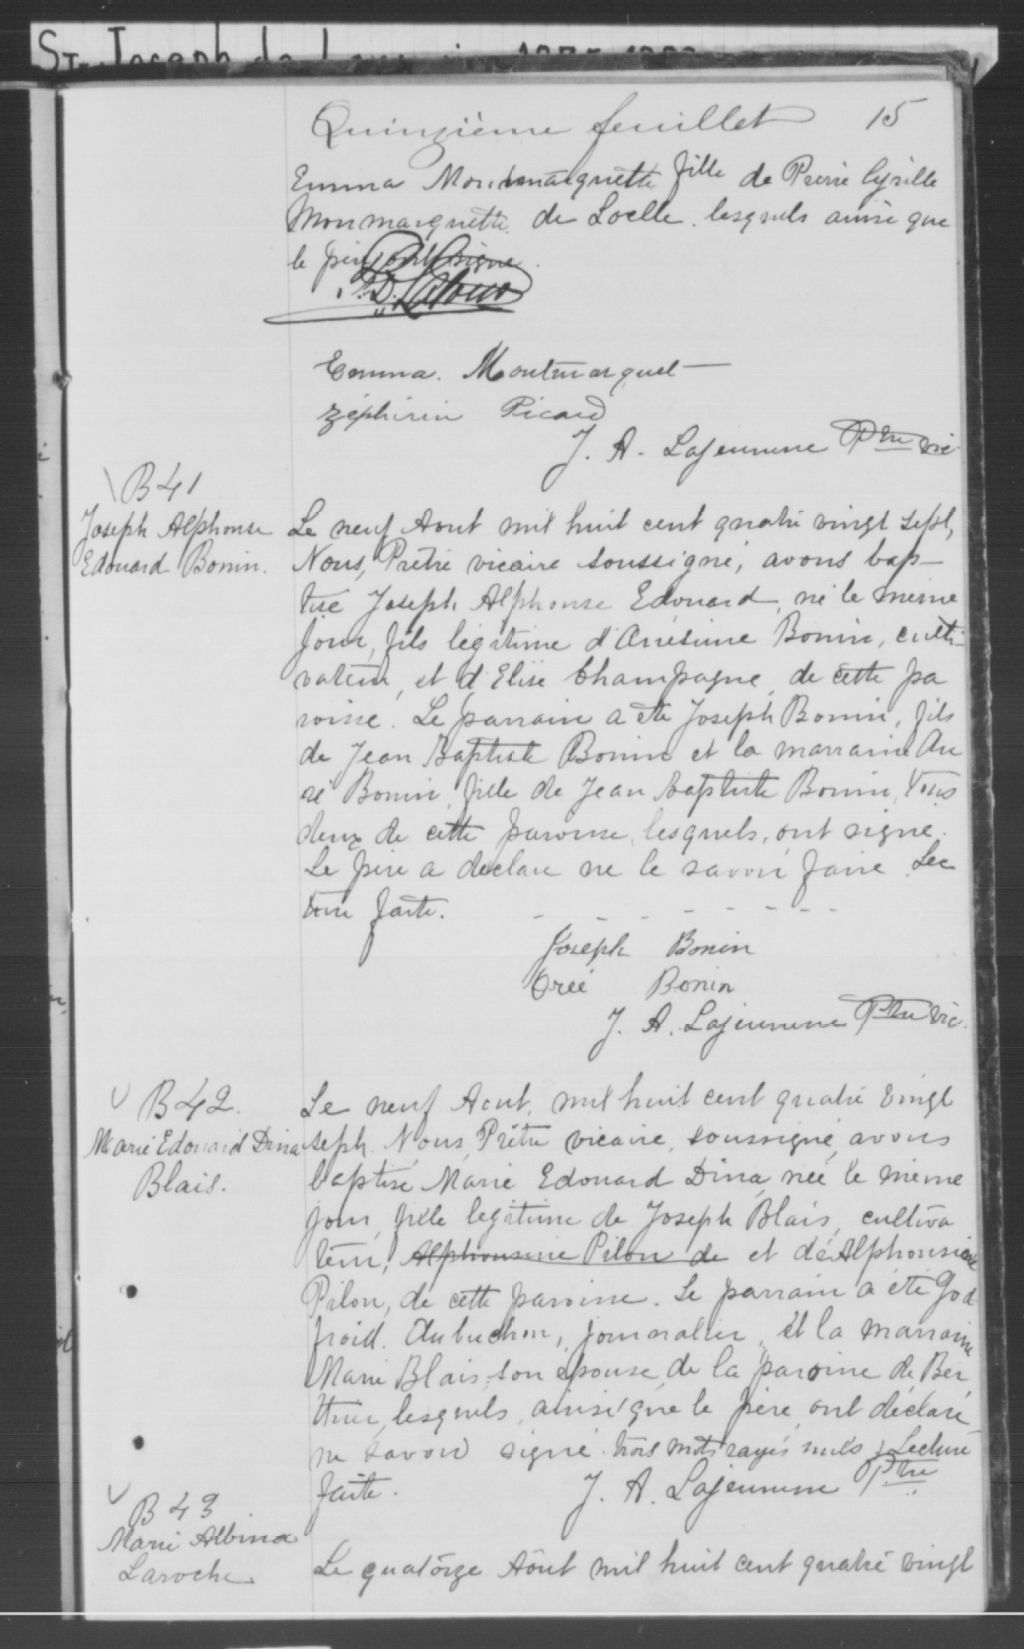 St. Joseph de
Quinzième feuillet 15
Emma Montmarquette fille de Pierre Cyrille
Monmarquette de Loelle. lesquels ainsi que
le père ont signé.
Emma. Montmarquet
Zéphirin Picard
J. A. Lajeunesse Ptre vic.
B 41
Joseph Alphonse
Edouard Bonin.
Le neuf Aout mil huit cent quatre vingt sept,
Nous, Prêtre vicaire soussigné, avons bap-
tisé Joseph Alphonse Edouard, né le même
jour, fils légitime d'Onésime Bonin, culti-
vateur, et d'Elise Champagne, de cette pa
roisse. Le parrain a été Joseph Bonin, fils
de Jean Baptiste Bonin et la marraine Au
ré Bonin, fille de Jean Baptiste Bonin, tous
deux de cette paroisse, lesquels, ont signé.
Le père a déclaré ne le savoir faire. Lec
ture faite.
Joseph Bonin
Oreé Bonin
J. A. Lajeunesse Ptre vic.
B 42.
Marie Edouard Dina
Blais.
Le neuf Aout, mil huit cent quatre vingt
seph. Nous, Prêtre vicaire, soussigné, avons
baptisé Marie Edouard Dina, née le même
jour, fille légitime de Joseph Blais, cultiva
teur, Alphonsine Pilon de et de Alphonsine
Pilon, de cette paroisse. Le parrain a été God
froid. Aubuchon, journalier, et la marraine
Marie Blais, son épouse, de la paroisse de Ber
thier, lesquels, ainsi que le père, ont déclaré
ne savoir signé. trois mots rayés nuls. Lecture
faite. J. A. Lajeunesse Ptre
B 43
Marie Albina
Laroche
Le quatorze Aôut mil huit cent quatre vingt